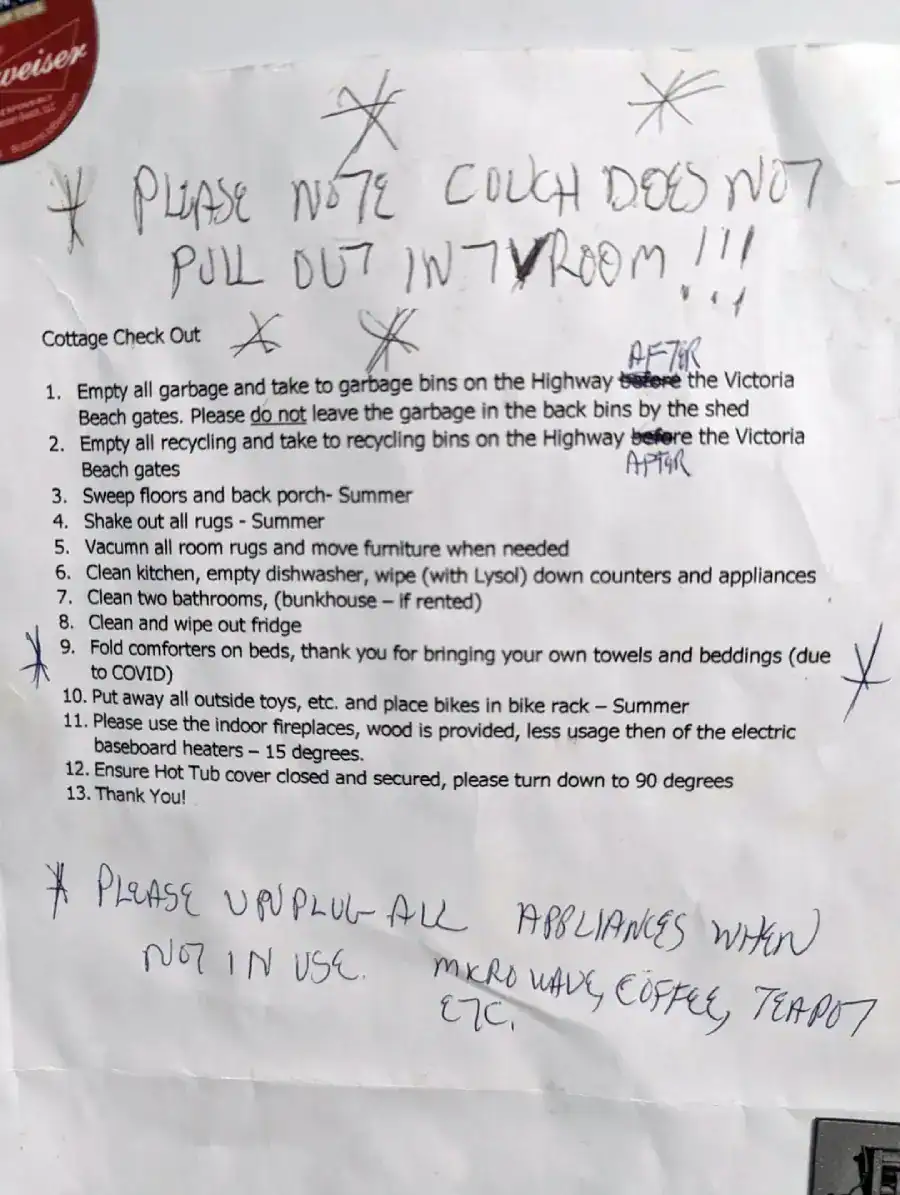 weiser
PLEASE NOTE COUCH DOES NOT
PULL OUT IN TV ROOM !!!
Cottage Check Out
AFTER
1. Empty all garbage and take to garbage bins on the Highway before the Victoria
Beach gates. Please do not leave the garbage in the back bins by the shed
2. Empty all recycling and take to recycling bins on the Highway before the Victoria
AFTER
Beach gates
3. Sweep floors and back porch- Summer
4. Shake out all rugs - Summer
5. Vacumn all room rugs and move furniture when needed
6. Clean kitchen, empty dishwasher, wipe (with Lysol) down counters and appliances
7. Clean two bathrooms, (bunkhouse – if rented)
8. Clean and wipe out fridge
9. Fold comforters on beds, thank you for bringing your own towels and beddings (due
to COVID)
10. Put away all outside toys, etc. and place bikes in bike rack – Summer
11. Please use the indoor fireplaces, wood is provided, less usage then of the electric
baseboard heaters – 15 degrees.
12. Ensure Hot Tub cover closed and secured, please turn down to 90 degrees
13. Thank You!
PLEASE UNPLUG ALL APPLIANCES WHEN
NOT IN USE. MICROWAVE, COFFEE, TEAPOT
ETC.